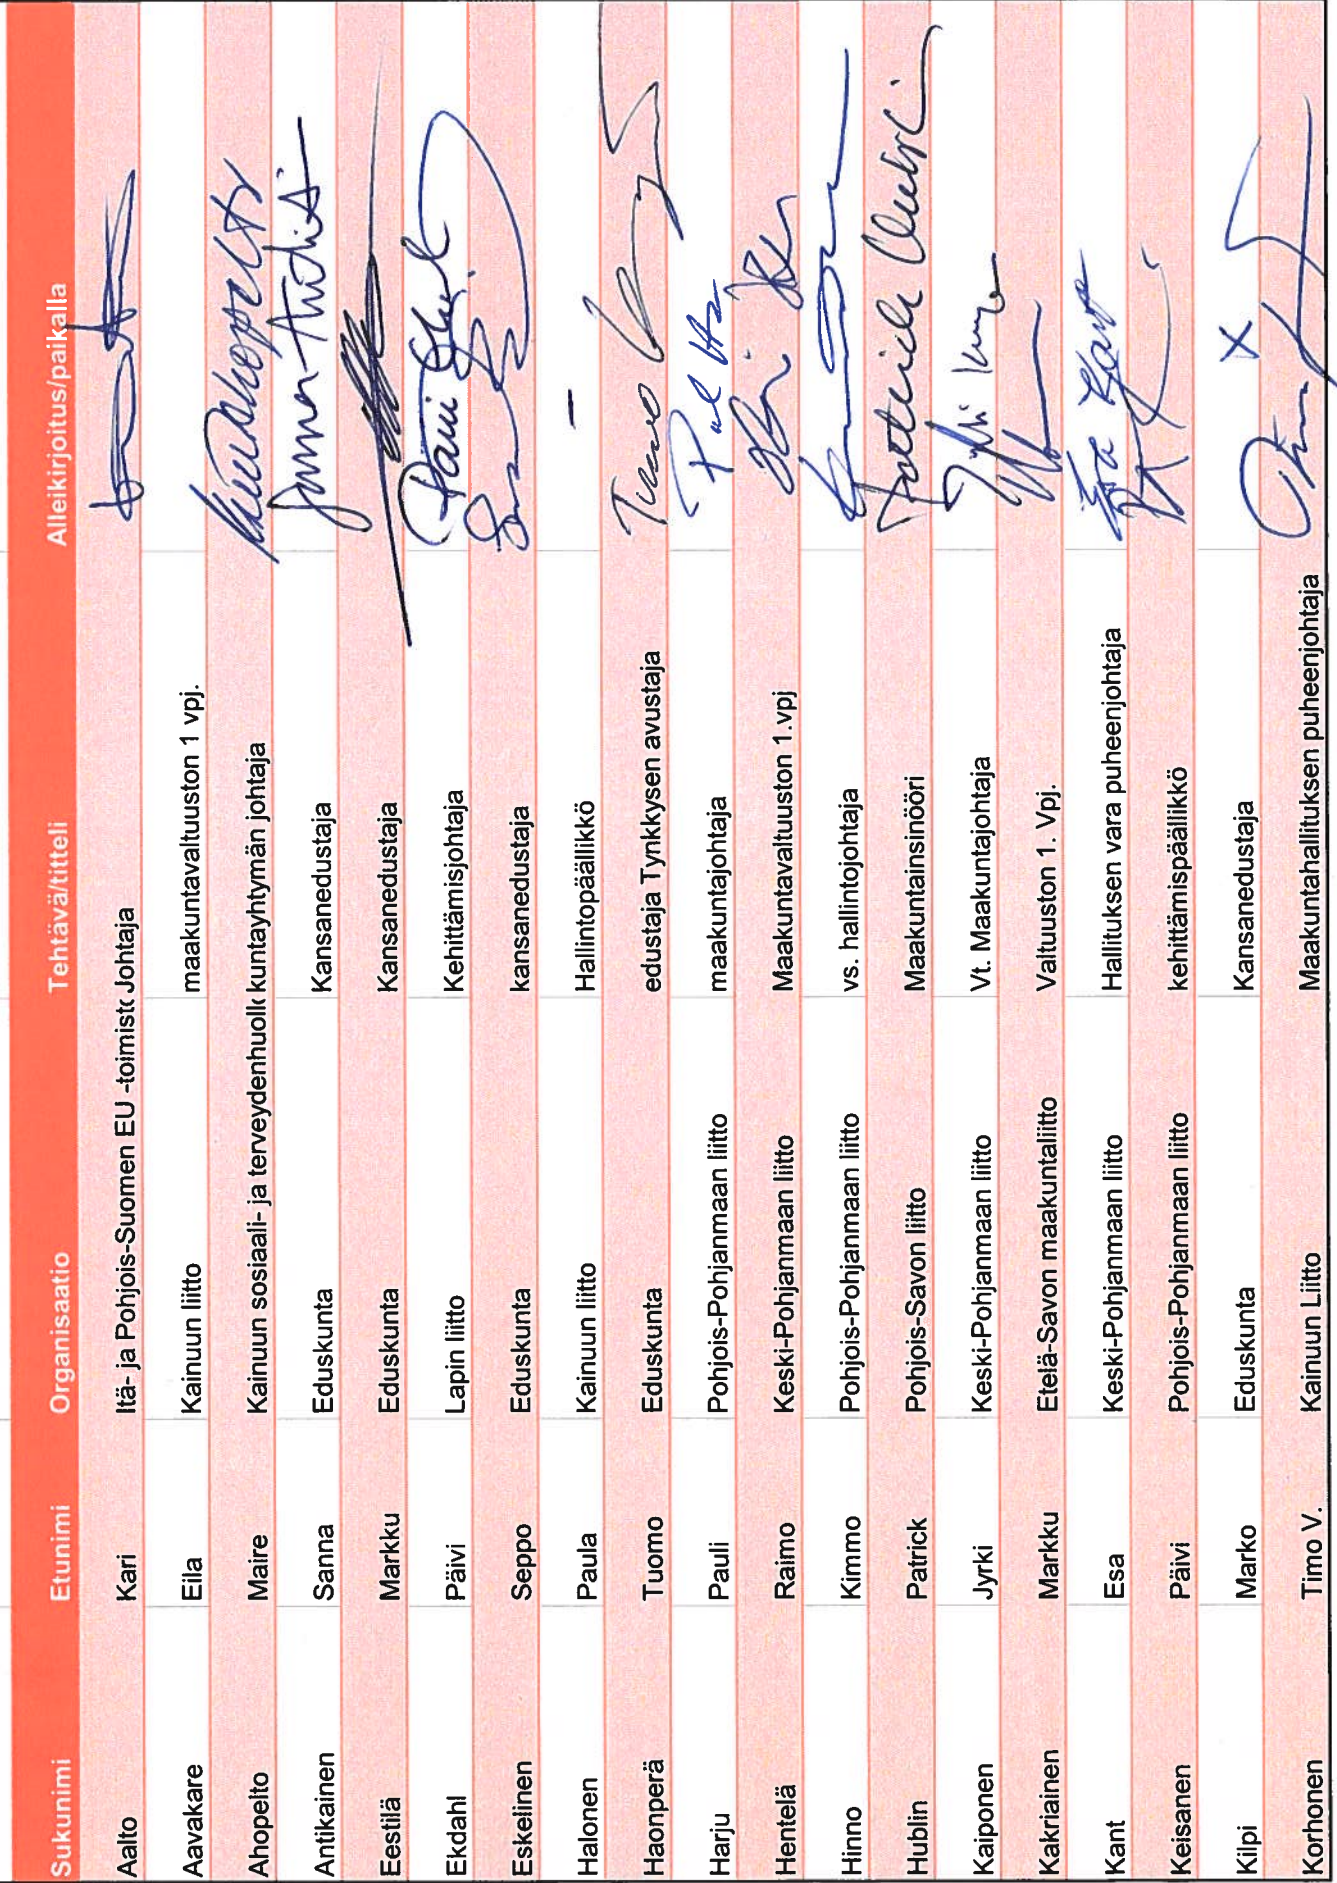 Sukunimi Etunimi Organisaatio Tehtävä/titteli Alleikirjoitus/paikalla
Aalto Kari Itä- ja Pohjois-Suomen EU -toimisto Johtaja
Aavakare Eila Kainuun liitto maakuntavaltuuston 1 vpj.
Ahopelto Maire Kainuun sosiaali- ja terveydenhuollo kuntayhtymän johtaja
Antikainen Sanna Eduskunta Kansanedustaja
Eestilä Markku Eduskunta Kansanedustaja
Ekdahl Päivi Lapin liitto Kehittämisjohtaja
Eskelinen Seppo Eduskunta kansanedustaja
Halonen Paula Kainuun liitto Hallintopäällikkö –
Haonperä Tuomo Eduskunta edustaja Tynkkysen avustaja Tuomo
Harju Pauli Pohjois-Pohjanmaan liitto maakuntajohtaja
Hentelä Raimo Keski-Pohjanmaan liitto Maakuntavaltuuston 1.vpj
Hinno Kimmo Pohjois-Pohjanmaan liitto vs. hallintojohtaja
Hublin Patrick Pohjois-Savon liitto Maakuntainsinööri
Kaiponen Jyrki Keski-Pohjanmaan liitto Vt. Maakuntajohtaja
Kakriainen Markku Etelä-Savon maakuntaliitto Valtuuston 1. Vpj.
Kant Esa Keski-Pohjanmaan liitto Hallituksen vara puheenjohtaja Esa Kant
Keisanen Päivi Pohjois-Pohjanmaan liitto kehittämispäällikkö
Kilpi Marko Eduskunta Kansanedustaja X
Korhonen Timo V. Kainuun Liitto Maakuntahallituksen puheenjohtaja